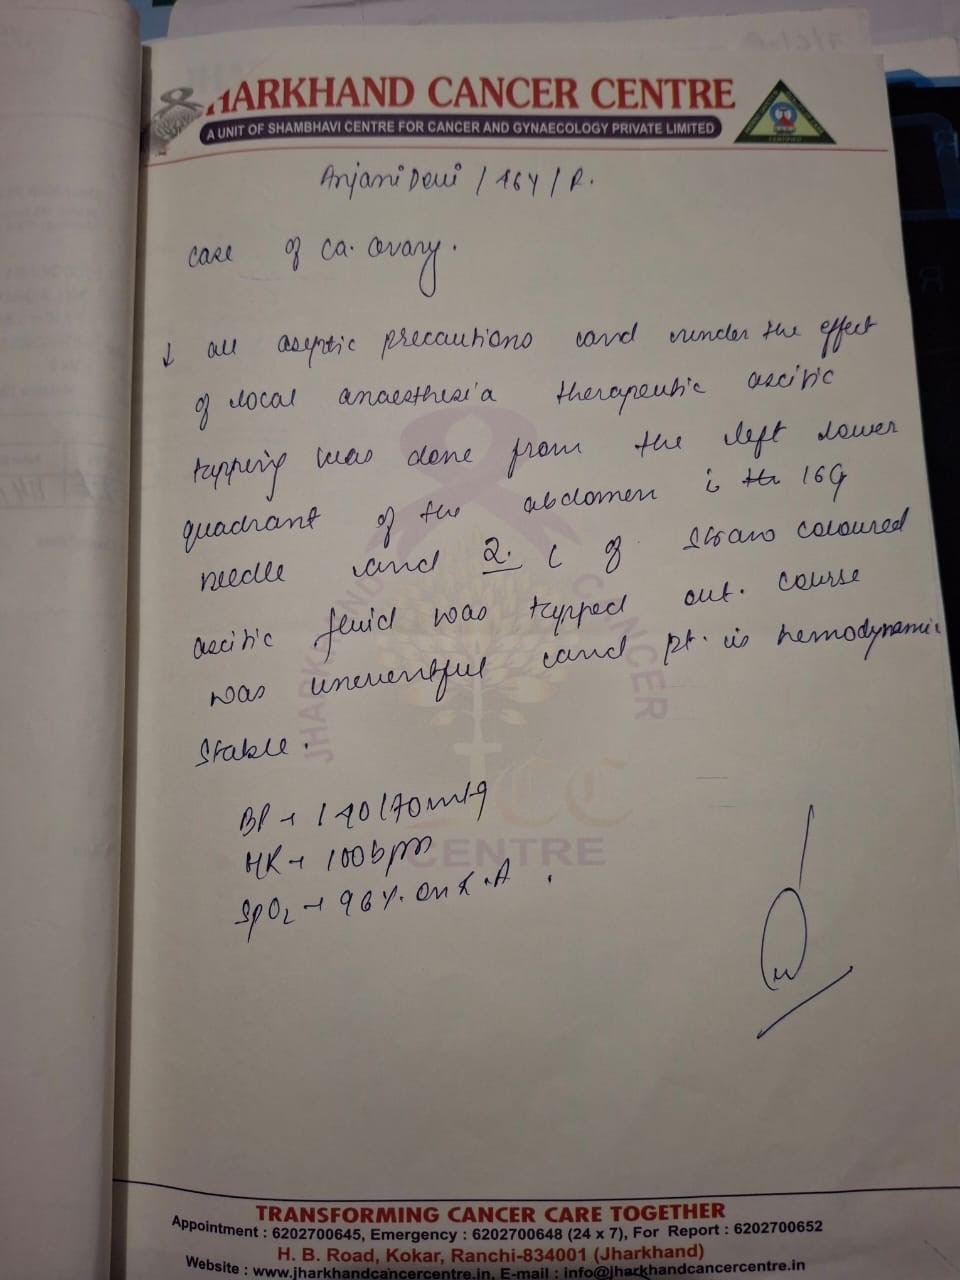 HARKHAND CANCER CENTRE
A UNIT OF SHAMBHAVI CENTRE FOR CANCER AND GYNAECOLOGY PRIVATE LIMITED
Anjani Devi / 46Y / F.
case of ca. ovary.
↓ all aseptic precautions and under the effect
of local anaesthesia therapeutic ascitic
tapping was done from the left lower
quadrant of the abdomen c̄ 16G
needle and 2. L of straw coloured
ascitic fluid was tapped out. course
was uneventful and pt. is hemodynamic
stable.
BP → 140/70mmHg
HR → 100bpm
SpO2 → 96%. on R.A.
JHARKHAND CANCER
JCC
CENTRE
TRANSFORMING CANCER CARE TOGETHER
Appointment : 6202700645, Emergency : 6202700648 (24 x 7), For Report : 6202700652
H. B. Road, Kokar, Ranchi-834001 (Jharkhand)
Website : www.jharkhandcancercentre.in, E-mail : info@jharkhandcancercentre.in